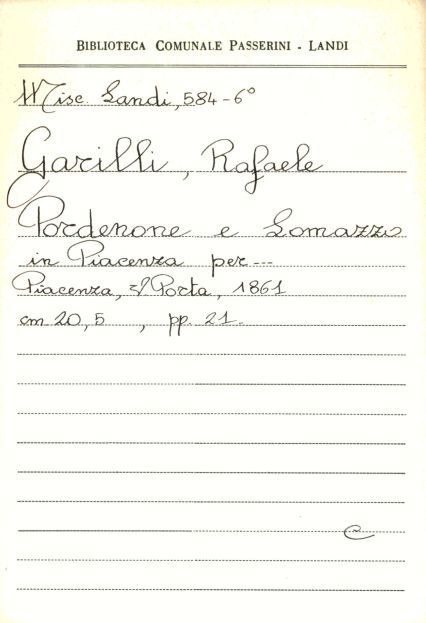 BIBLIOTECA COMUNALE PASSERINI - LANDI
Misc. Landi, 584-6°
Garilli, Rafaele
Pordenone e Lomazzo
in Piacenza per---
Piacenza, Porta, 1861
cm 20,5 , pp. 21.
C